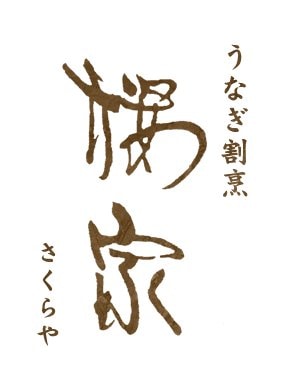 うなぎ割烹
櫻家
さくらや